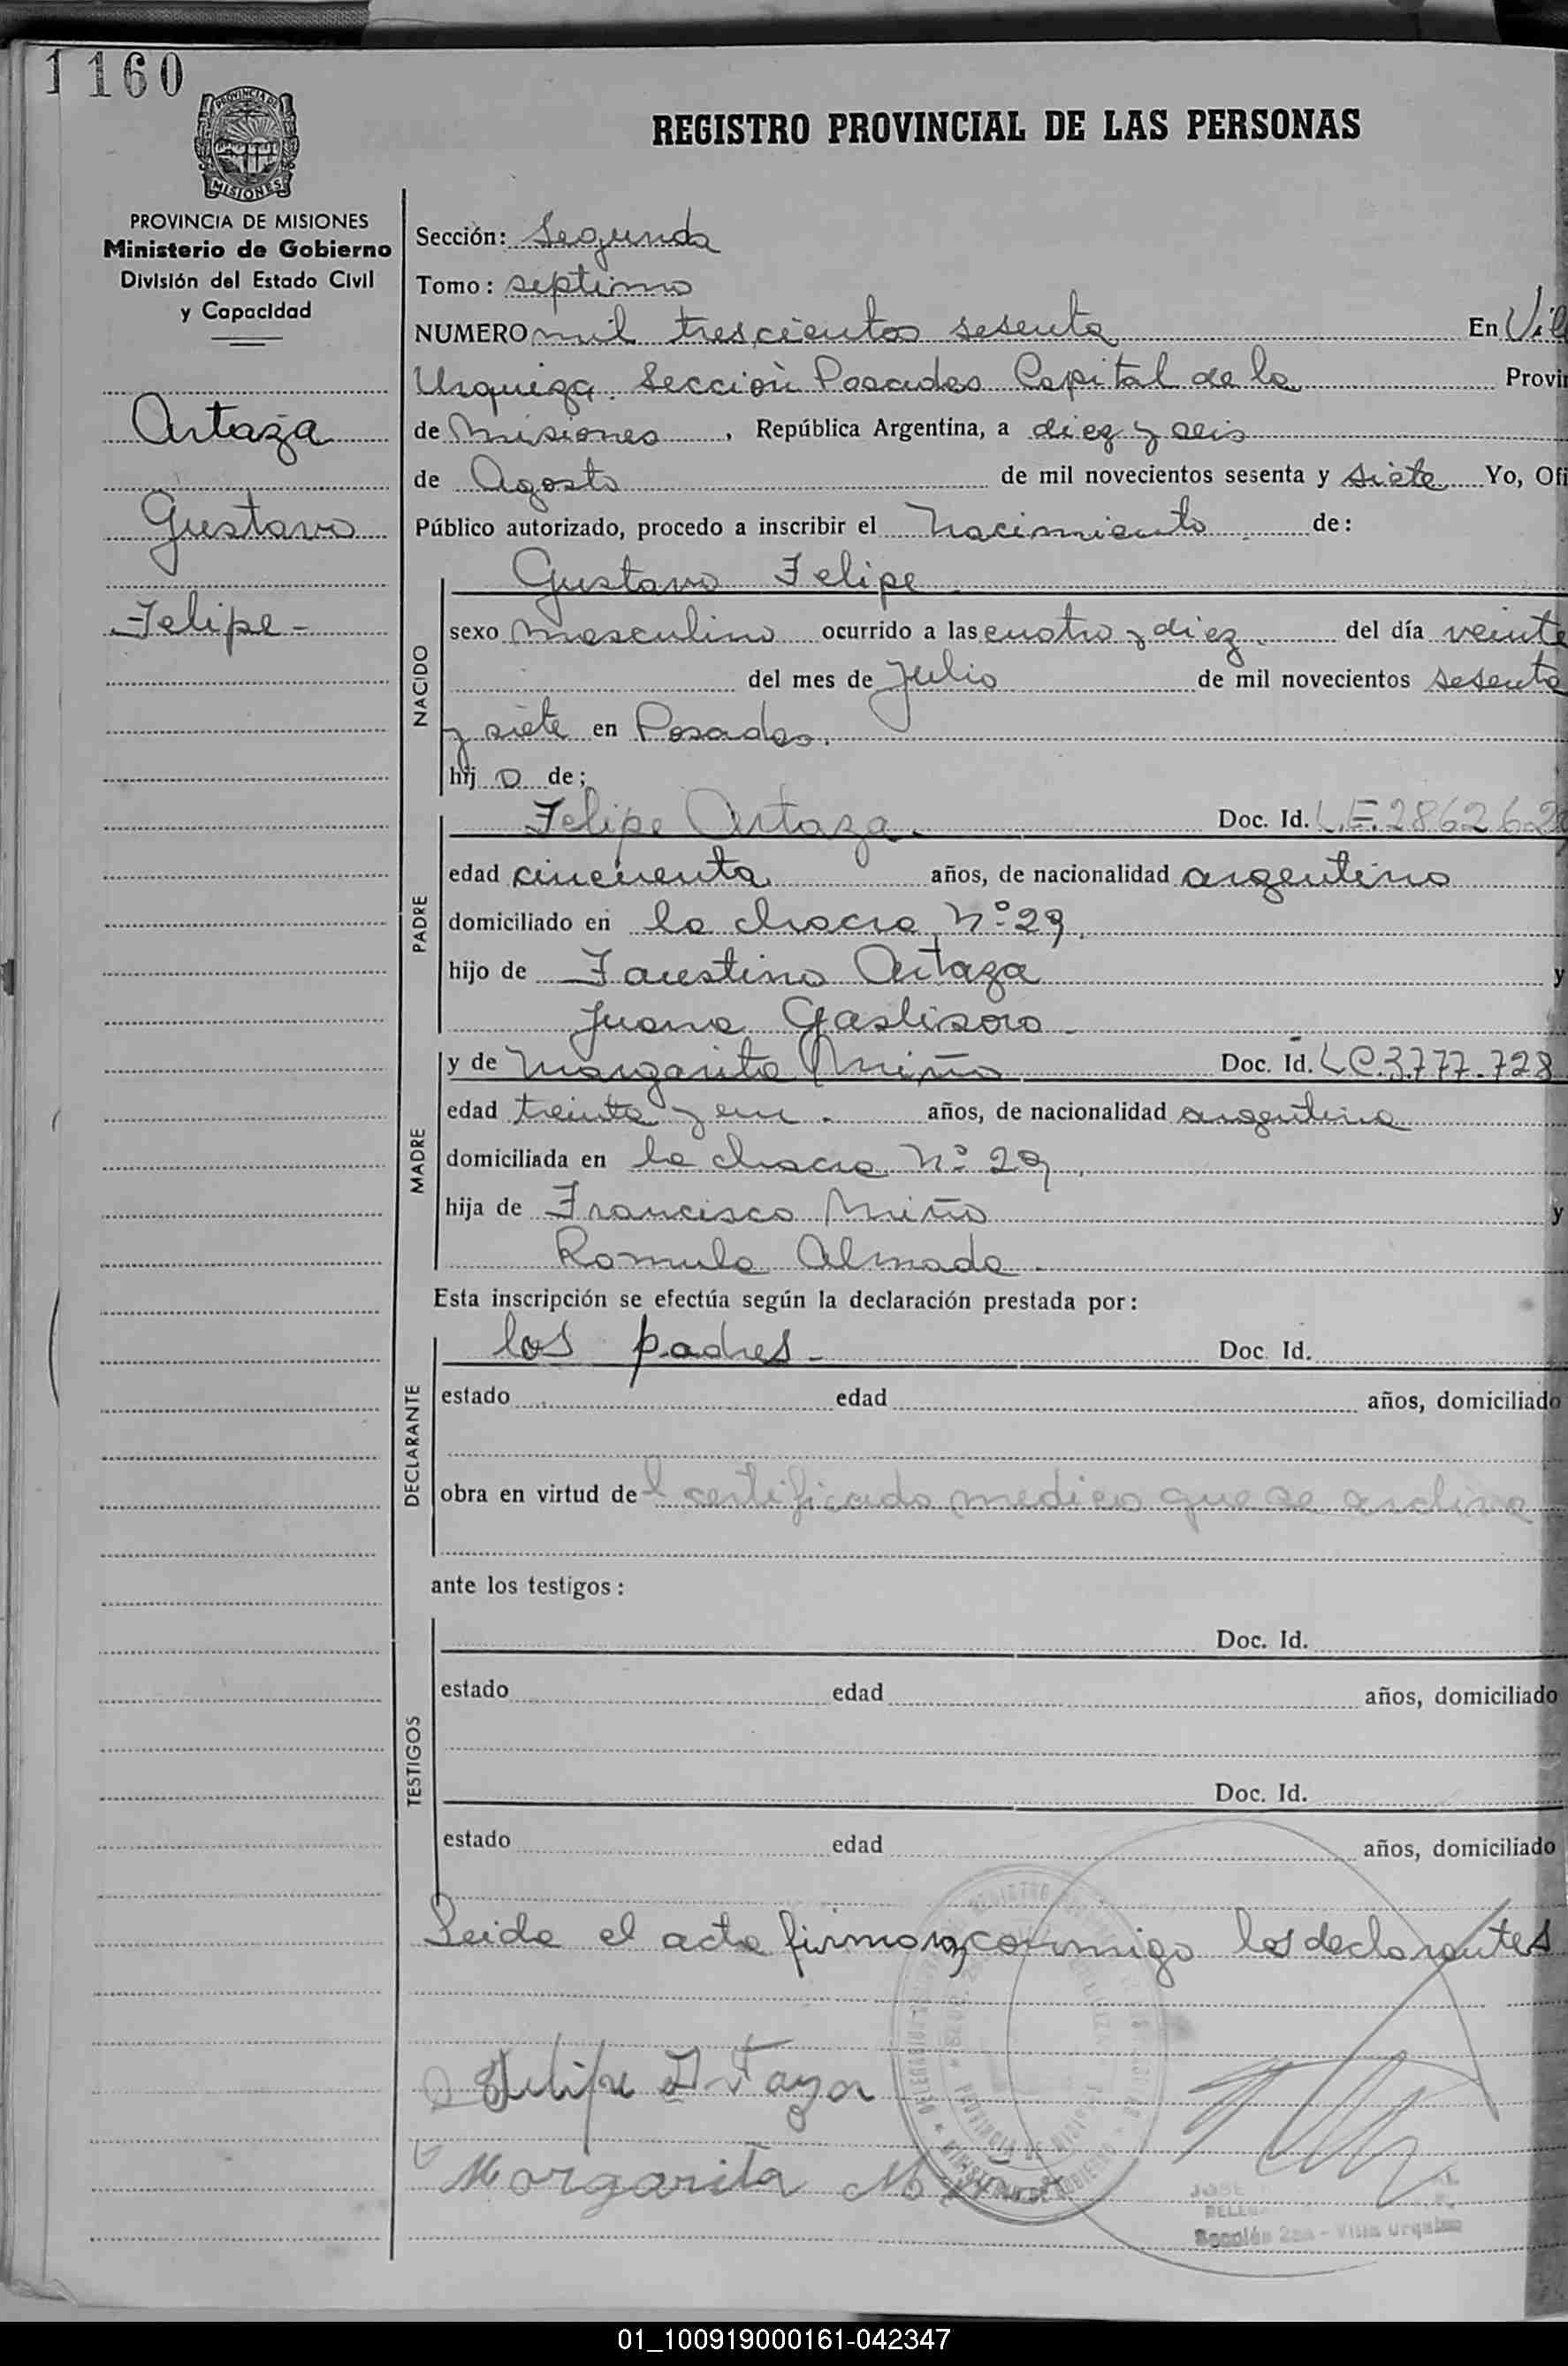 1 160
PROVINCIA DE
MISIONES
REGISTRO PROVINCIAL DE LAS PERSONAS
PROVINCIA DE MISIONES
Ministerio de Gobierno
División del Estado Civil
y Capacidad
Artaza
Gustavo
Felipe-
Sección: Segunda
Tomo: septimo
NUMERO mil trescientos sesenta En Vil
Urquiza. Sección Posadas Capital de la Provin
de Misiones, República Argentina, a diez y seis
de Agosto de mil novecientos sesenta y siete Yo, Ofi
Público autorizado, procedo a inscribir el Nacimiento de:
NACIDO
Gustavo Felipe
sexo Masculino ocurrido a las cuatro y diez. del día veinte
del mes de Julio de mil novecientos sesenta
y siete en Posadas.
hij o de;
PADRE
Felipe Artaza. Doc. Id. L.E. 286262
edad cincuenta años, de nacionalidad argentino
domiciliado en la chacra Nº 29.
hijo de Faustino Artaza y
Juana
MADRE
y de Margarita Miño Doc. Id. LC.3.777.728
edad treinta y un. años, de nacionalidad argentina
domiciliada en la chacra Nº 29.
hija de Francisco Miño y
Romula Almada.
Esta inscripción se efectúa según la declaración prestada por:
DECLARANTE
los padres- Doc. Id.
estado edad años, domiciliado
obra en virtud del certificado medico que se archiva
ante los testigos:
TESTIGOS
Doc. Id.
estado edad años, domiciliado
Doc. Id.
estado edad años, domiciliado
Leida el acta firman conmigo los declarantes
Felipe Artaza
Margarita Miño
JOSE
DELEG
Sección 2da - Villa Urquiza
01_100919000161-042347